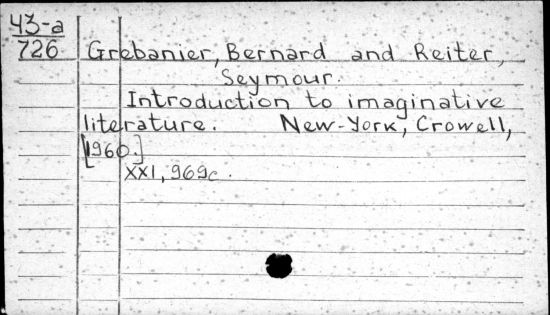 43-a
726 Grebanier, Bernard and Reiter,
Seymour.
Introduction to imaginative
literature. New-York, Crowell,
[1960.]
XXI, 969c.